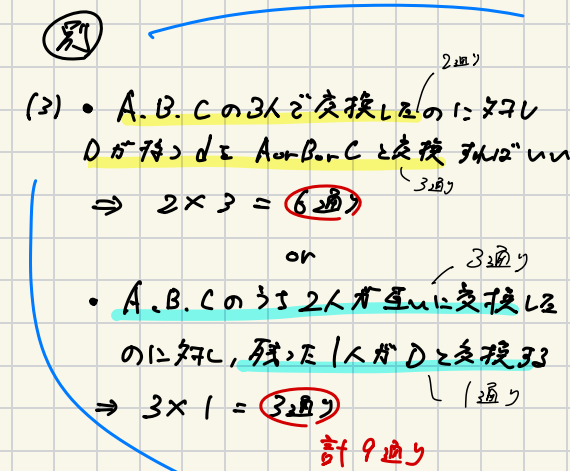 別
2通り
(3) • A.B.Cの3人で交換したのに対し
Dが持つdをAorBorCと交換すればいい
3通り
⇒ 2×3=6通り
or
3通り
• A.B.Cのうち2人が互いに交換した
のに対し,残った1人がDと交換する
1通り
⇒ 3×1=3通り
計9通り